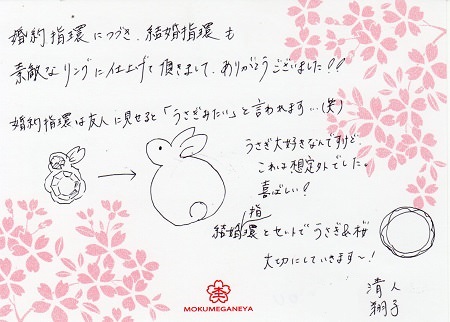 婚約指環につづき、結婚指環も
素敵なリングに仕上げて頂きまして、ありがとうございました!!
婚約指環は友人に見せると「うさぎみたい」と言われます…(笑)
うさぎ大好きなんですけど、
これは想定外でした。
喜ばしい!
結婚指環とセットでうさぎ&桜
大切にしていきます〜!
清人
翔子
MOKUMEGANEYA